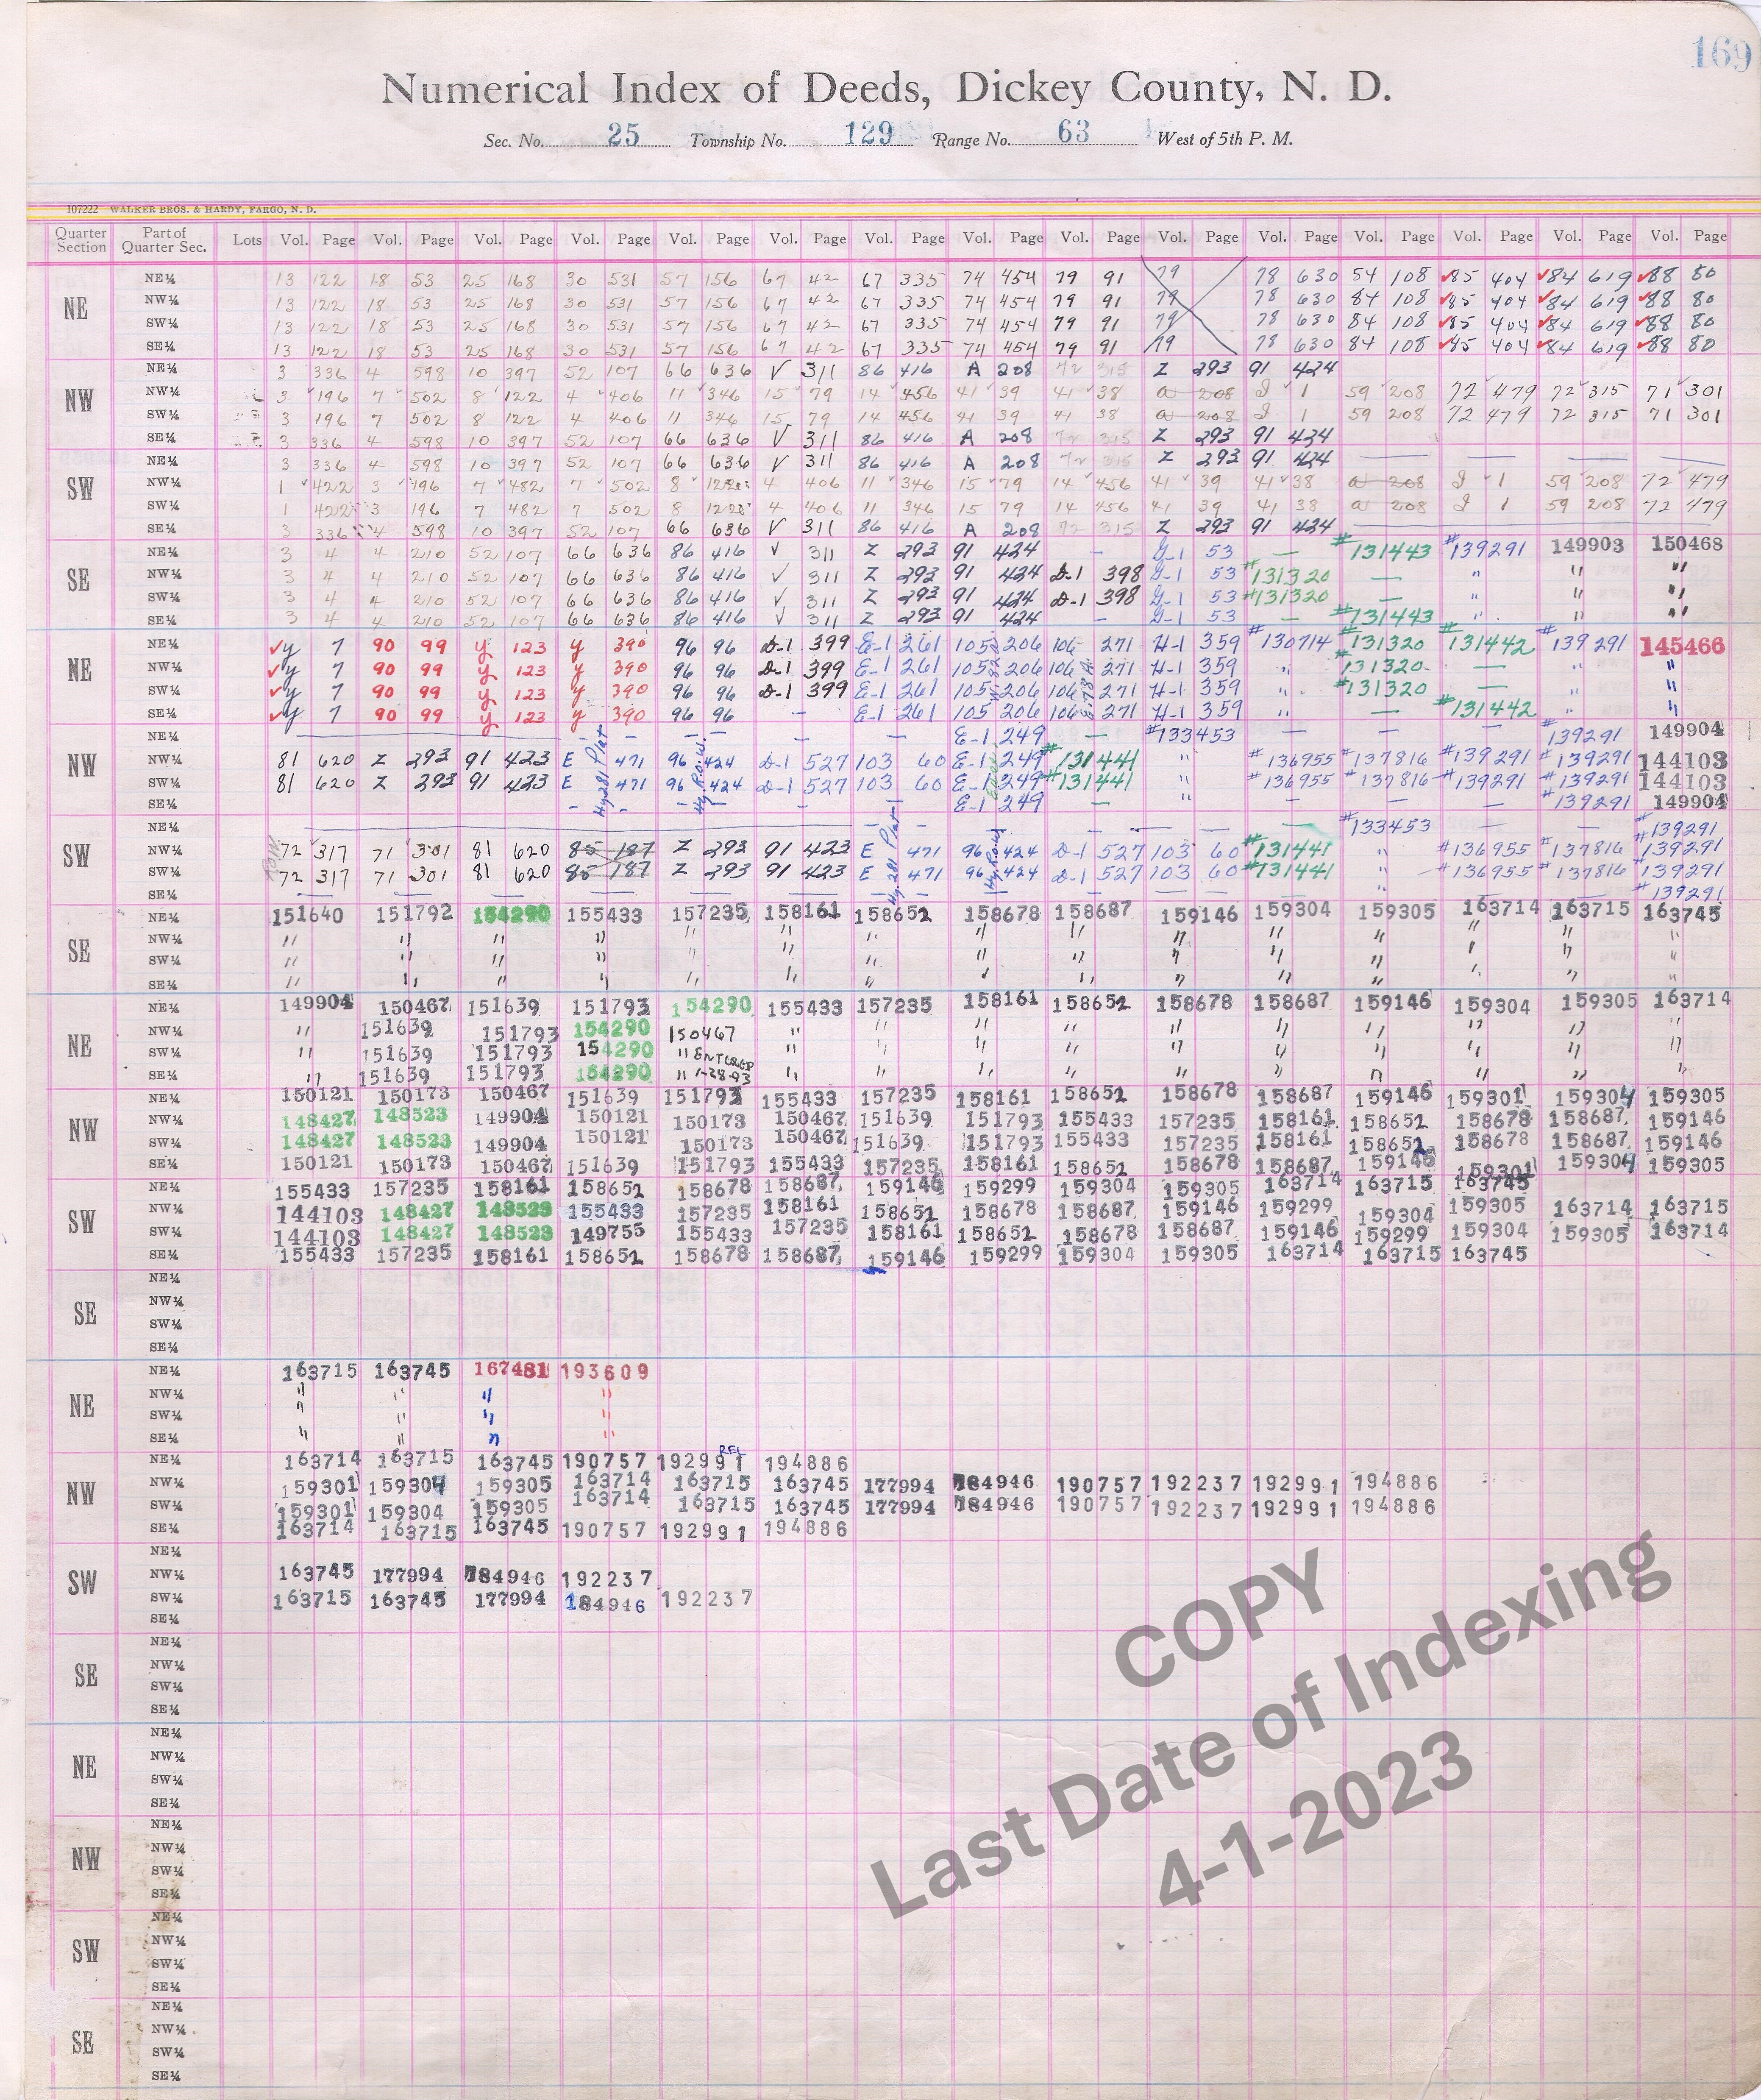 169
Numerical Index of Deeds, Dickey County, N. D.
Sec. No. 25 Township No. 129 Range No. 63 West of 5th P. M.
107222 WALKER BROS. & HARDY, FARGO, N. D.
Quarter Section Part of Quarter Sec. Lots Vol. Page Vol. Page Vol. Page Vol. Page Vol. Page Vol. Page Vol. Page Vol. Page Vol. Page Vol. Page Vol. Page Vol. Page Vol. Page Vol. Page Vol. Page
NE
NE¼ 13 122 18 53 25 168 30 531 57 156 67 42 67 335 74 454 79 91 79 78 630 54 108 85 404 84 619 88 80
NW¼ 13 122 18 53 25 168 30 531 57 156 67 42 67 335 74 454 79 91 79 78 630 84 108 85 404 84 619 88 80
SW¼ 13 122 18 53 25 168 30 531 57 156 67 42 67 335 74 454 79 91 79 78 630 84 108 85 404 84 619 88 80
SE¼ 13 122 18 53 25 168 30 531 57 156 67 42 67 335 74 454 79 91 79 78 630 84 108 85 404 84 619 88 80
NW
NE¼ 3 336 4 598 10 397 52 107 66 636 V 311 86 416 A 208 72 315 Z 293 91 424
NW¼ 3 196 7 502 8 122 4 406 11 346 15 79 14 456 41 39 41 38 a 208 J 1 59 208 72 479 72 315 71 301
SW¼ 3 196 7 502 8 122 4 406 11 346 15 79 14 456 41 39 41 38 a 208 J 1 59 208 72 479 72 315 71 301
SE¼ 3 336 4 598 10 397 52 107 66 636 V 311 86 416 A 208 72 315 Z 293 91 424
SW
NE¼ 3 336 4 598 10 397 52 107 66 636 V 311 86 416 A 208 72 315 Z 293 91 424
NW¼ 1 422 3 196 7 482 7 502 8 122 4 406 11 346 15 79 14 456 41 39 41 38 a 208 J 1 59 208 72 479
SW¼ 1 422 3 196 7 482 7 502 8 122 4 406 11 346 15 79 14 456 41 39 41 38 a 208 J 1 59 208 72 479
SE¼ 3 336 4 598 10 397 52 107 66 636 V 311 86 416 A 208 72 315 Z 293 91 424
SE
NE¼ 3 4 4 210 52 107 66 636 86 416 V 311 Z 293 91 424 – G-1 53 – #131443 #139291 149903 150468
NW¼ 3 4 4 210 52 107 66 636 86 416 V 311 Z 293 91 424 D-1 398 G-1 53 #131320 – " " "
SW¼ 3 4 4 210 52 107 66 636 86 416 V 311 Z 293 91 424 D-1 398 G-1 53 #131320 – " " "
SE¼ 3 4 4 210 52 107 66 636 86 416 V 311 Z 293 91 424 – G-1 53 – #131443 " " "
NE
NE¼ y 7 90 99 y 123 y 390 96 96 D-1 399 E-1 261 105 206 106 271 H-1 359 #130714 #131320 #131442 #139291 145466
NW¼ y 7 90 99 y 123 y 390 96 96 D-1 399 E-1 261 105 206 106 271 H-1 359 " #131320 – " "
SW¼ y 7 90 99 y 123 y 390 96 96 D-1 399 E-1 261 105 206 106 271 H-1 359 " #131320 – " "
SE¼ y 7 90 99 y 123 y 390 96 96 – E-1 261 105 206 106 271 H-1 359 " – #131442 " "
NW
NE¼ – – – – E-1 249 – #133453 – – – #139291 149904
NW¼ 81 620 Z 293 91 423 E Hy 281 Plat 471 96 Hy R.O.W. 424 D-1 527 103 60 E-1 249 #131441 " #136955 #137816 #139291 #139291 144103
SW¼ 81 620 Z 293 91 423 E 471 96 424 D-1 527 103 60 E-1 249 #131441 " #136955 #137816 #139291 #139291 144103
SE¼ – – – – E-1 249 – " – – – #139291 149904
SW
NE¼ – – – – – #133453 – – #139291
NW¼ 72 317 71 301 81 620 85 187 Z 293 91 423 E Hy 281 Plat 471 96 Hy R.O.W. 424 D-1 527 103 60 #131441 " #136955 #137816 #139291
SW¼ 72 317 71 301 81 620 85 187 Z 293 91 423 E 471 96 424 D-1 527 103 60 #131441 " #136955 #137816 #139291
SE¼ – – – – – – – – #139291
SE
NE¼ 151640 151792 154290 155433 157235 158161 158652 158678 158687 159146 159304 159305 163714 163715 163745
NW¼ " " " " " " " " " " " " " " "
SW¼ " " " " " " " " " " " " " " "
SE¼ " " " " " " " " " " " " " " "
NE
NE¼ 149904 150467 151639 151793 154290 155433 157235 158161 158652 158678 158687 159146 159304 159305 163714
NW¼ " 151639 151793 154290 150467 " " " " " " " " " "
SW¼ " 151639 151793 154290 " ENTERED " " " " " " " " " "
SE¼ " 151639 151793 154290 " 1-28-93 " " " " " " " " " "
NW
NE¼ 150121 150173 150467 151639 151793 155433 157235 158161 158652 158678 158687 159146 159301 159304 159305
NW¼ 148427 148523 149904 150121 150173 150467 151639 151793 155433 157235 158161 158652 158678 158687 159146
SW¼ 148427 148523 149904 150121 150173 150467 151639 151793 155433 157235 158161 158652 158678 158687 159146
SE¼ 150121 150173 150467 151639 151793 155433 157235 158161 158652 158678 158687 159146 159301 159304 159305
SW
NE¼ 155433 157235 158161 158652 158678 158687 159146 159299 159304 159305 163714 163715 163745
NW¼ 144103 148427 148523 155433 157235 158161 158652 158678 158687 159146 159299 159304 159305 163714 163715
SW¼ 144103 148427 148523 149755 155433 157235 158161 158652 158678 158687 159146 159299 159304 159305 163714
SE¼ 155433 157235 158161 158652 158678 158687 159146 159299 159304 159305 163714 163715 163745
SE
NE¼
NW¼
SW¼
SE¼
NE
NE¼ 163715 163745 167481 193609
NW¼ " " " "
SW¼ " " " "
SE¼ " " " "
NW
NE¼ 163714 163715 163745 190757 192991 REL 194886
NW¼ 159301 159304 159305 163714 163715 163745 177994 184946 190757 192237 192991 194886
SW¼ 159301 159304 159305 163714 163715 163745 177994 184946 190757 192237 192991 194886
SE¼ 163714 163715 163745 190757 192991 194886
SW
NE¼
NW¼ 163745 177994 184946 192237
SW¼ 163715 163745 177994 184946 192237
SE¼
SE
NE¼
NW¼
SW¼
SE¼
NE
NE¼
NW¼
SW¼
SE¼
NW
NE¼
NW¼
SW¼
SE¼
SW
NE¼
NW¼
SW¼
SE¼
SE
NE¼
NW¼
SW¼
SE¼
COPY
Last Date of Indexing
4-1-2023